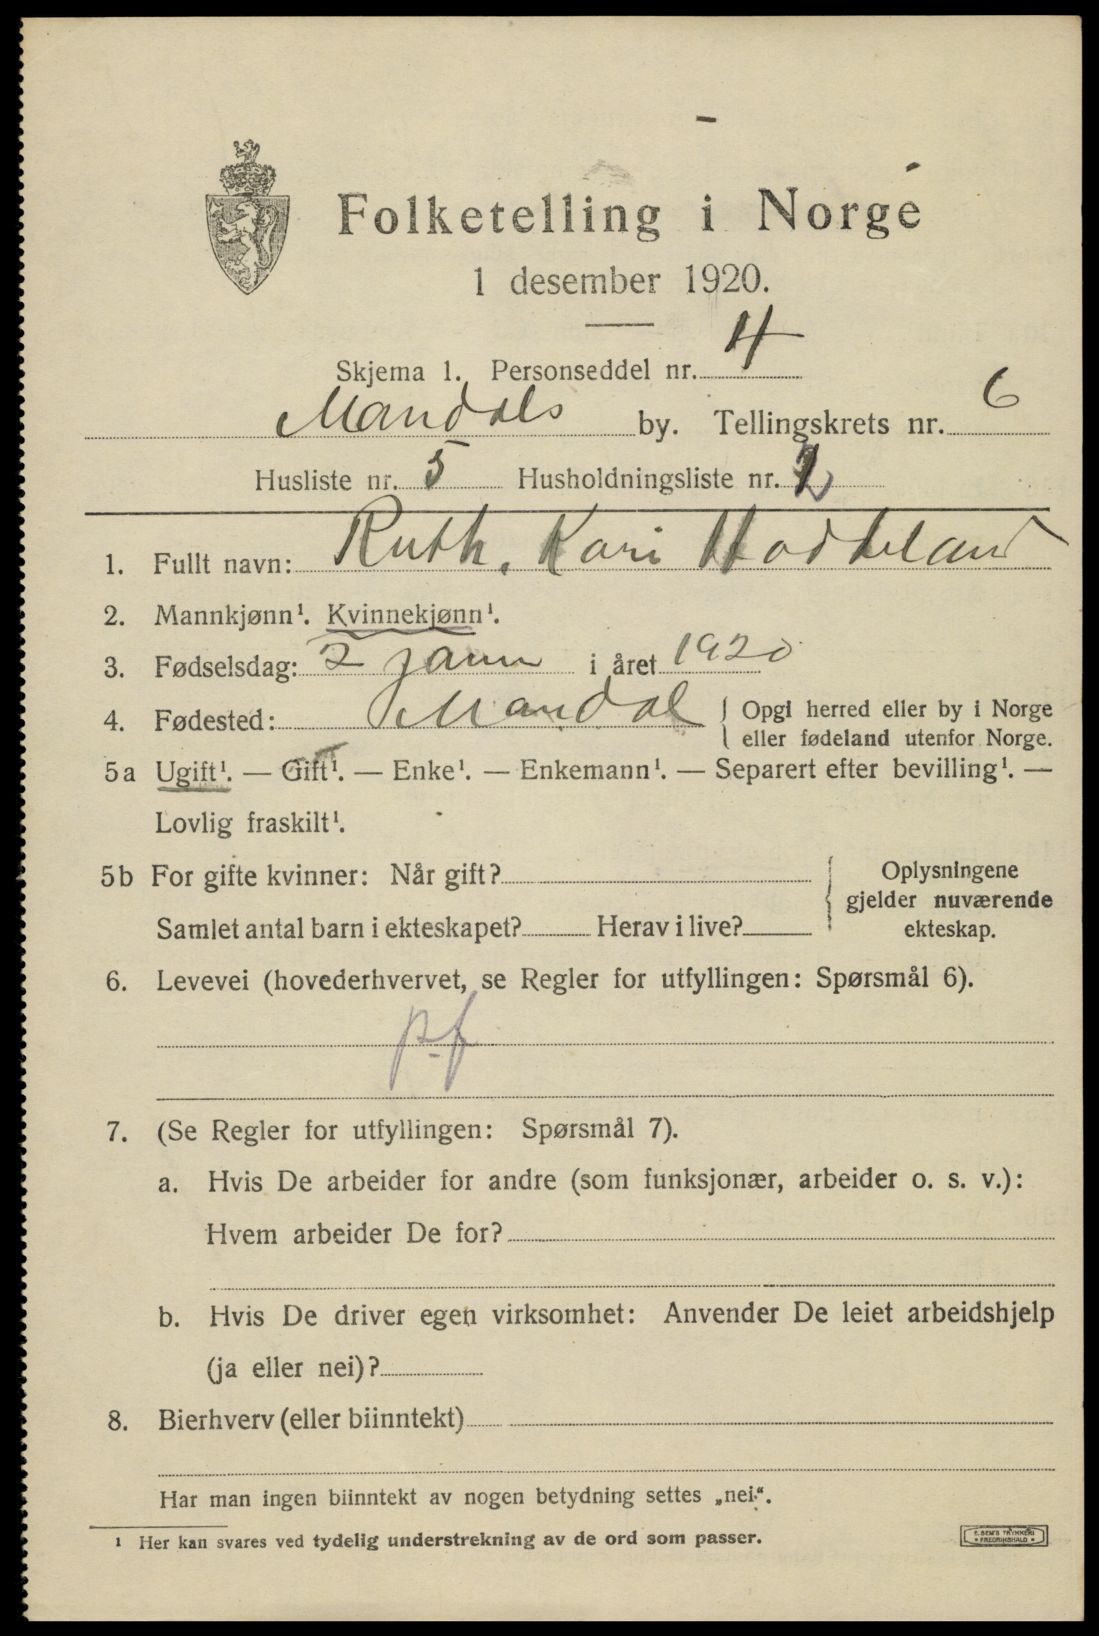 Folketelling i Norge
1 desember 1920.
Skjema 1. Personseddel nr. 4
Mandals by. Tellingskrets nr. 6
Husliste nr. 5 Husholdningsliste nr. 2
1. Fullt navn: Ruth, Kari
2. Mannkjønn¹. Kvinnekjønn¹.
3. Fødselsdag: 2 i året 1920
4. Fødested: Mandal { Opgi herred eller by i Norge
eller fødeland utenfor Norge.
5a Ugift¹. — Gift¹. — Enke¹. — Enkemann¹. — Separert efter bevilling¹. —
Lovlig fraskilt¹.
5b For gifte kvinner: Når gift? { Oplysningene
gjelder nuværende
Samlet antal barn i ekteskapet? Herav i live? ekteskap.
6. Levevei (hovederhvervet, se Regler for utfyllingen: Spørsmål 6).
p-f
7. (Se Regler for utfyllingen: Spørsmål 7).
a. Hvis De arbeider for andre (som funksjonær, arbeider o. s. v.):
Hvem arbeider De for?
b. Hvis De driver egen virksomhet: Anvender De leiet arbeidshjelp
(ja eller nei)?
8. Bierhverv (eller biinntekt)
Har man ingen biinntekt av nogen betydning settes „nei“.
¹ Her kan svares ved tydelig understrekning av de ord som passer.
E. SEM'S TRYKKERI
• FREDRIKSHALD •